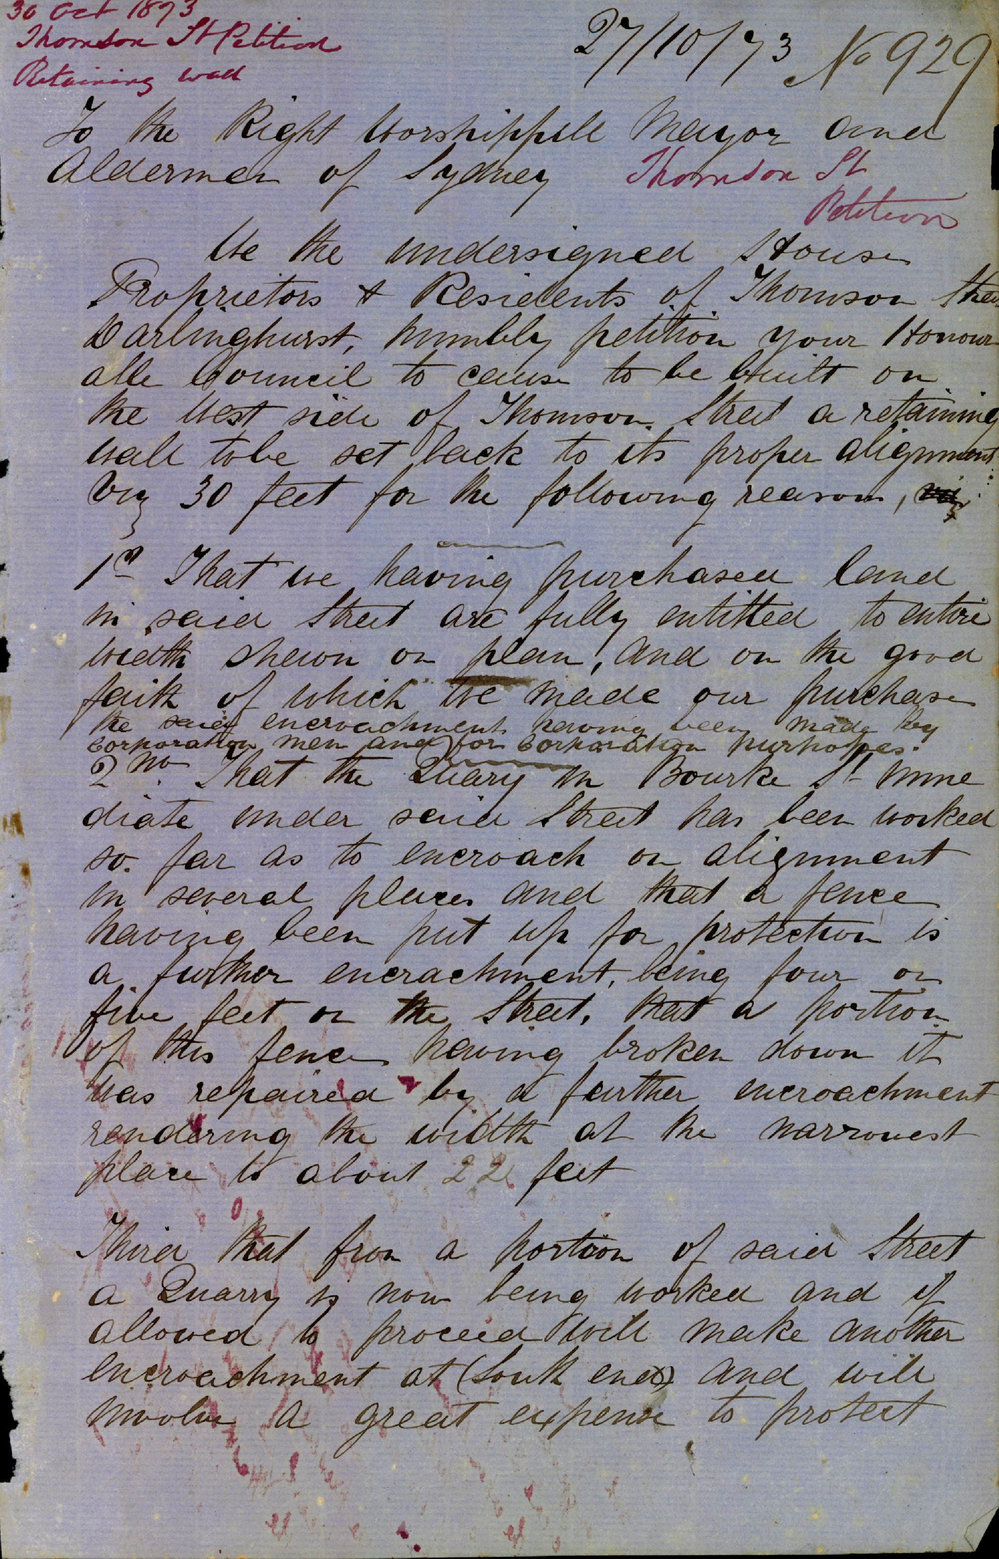 30 Oct 1873
Thomson St Petition
Retaining wall
27/10/73 No 929
To the Right Worshippfll Mayor and
Aldermen of Sydney
Thomson St
Petition
We the undersigned House
Proprietors & Residents of Thomson Stree
Darlinghurst, humbly petition your Honour
able Council to cause to be built on
the West side of Thomson Street a retaining
wall to be set back to its proper alignment
Viz 30 feet for the following reasons, viz
1st That we having purchased land
in said Street are fully entitled to entire
width shewn on plan, and on the good
faith of which we made our purchase
the said encroachment having been made by
corporation men and for corporation purposes.
2nd. That the Quary in Bourke St imme
diate under said Street has been worked
so far as to encroach on alignment
in several places and that a fence
having been put up for protection is
a further encrachment, being four or
five feet on the Street, that a portion
of this fence having broken down it
was repaired by a further encroachment
rendering the width at the narrowest
place to about 22 feet
Third that from a portion of said Street
a Quarry is now being worked and if
allowed to proceed will make another
encroachment at (South end) and will
involve a great expense to protect